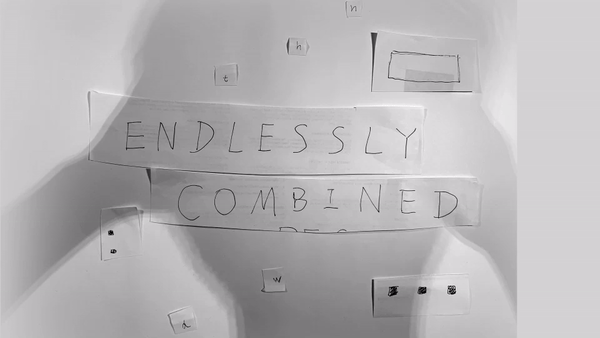 n
h
t
ENDLESSLY
COMBINED
w
d